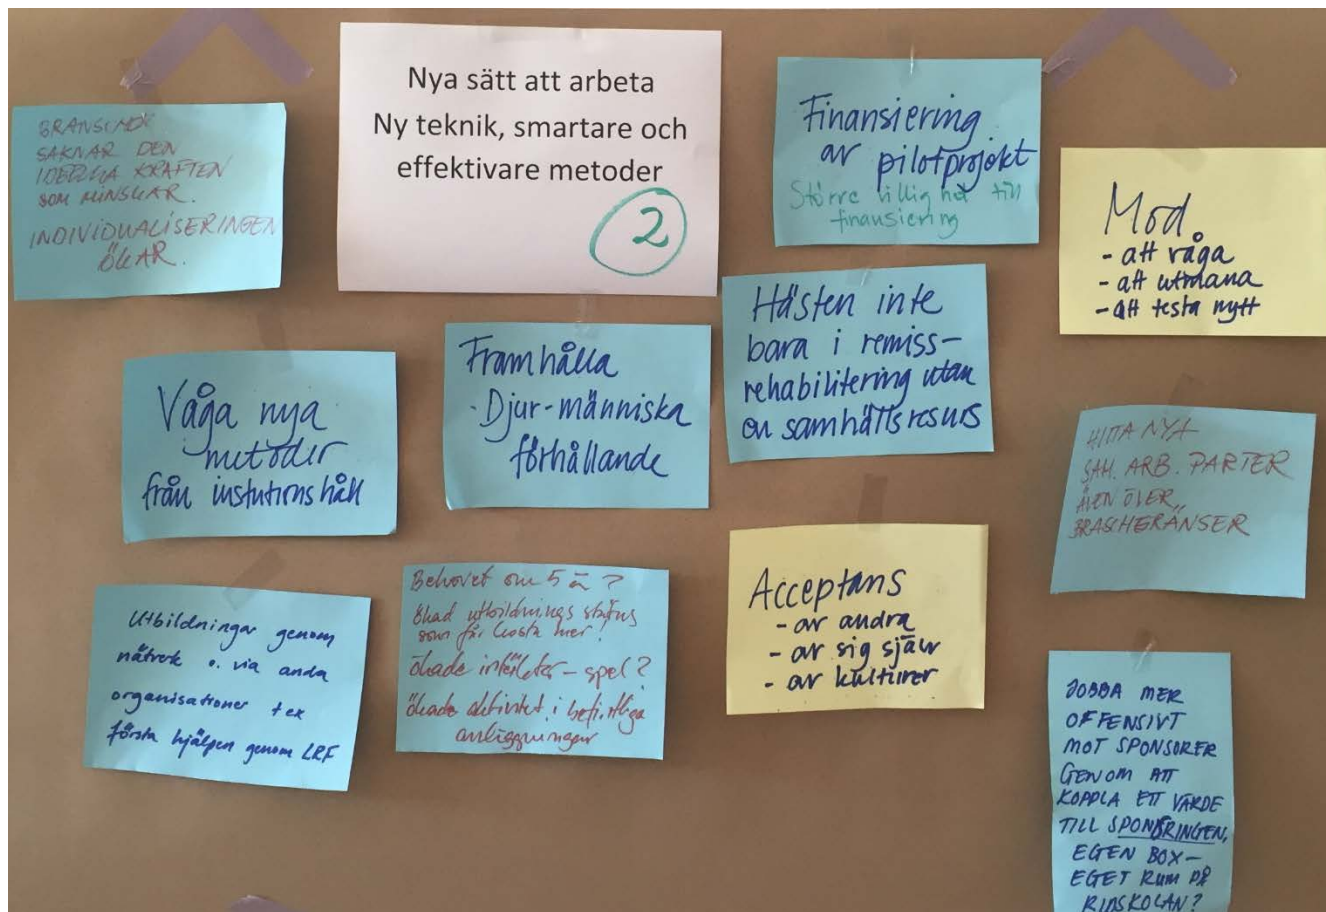 Nya sätt att arbeta
Ny teknik, smartare och
effektivare metoder
2
SAKNAR DEN
IDEELLA KRAFTEN
SOM MINSKAR.
INDIVIDUALISERINGEN
ÖKAR.
Finansiering
av pilotprojekt
Större villighet till
finansiering
Mod
- att våga
- att utmana
- att testa nytt
Våga nya
metoder
från instutionshåll
Framhålla
Djur-människa
förhållande
Hästen inte
bara i remiss-
rehabilitering utan
en samhällsresurs
HITTA NYA
SAM. ARB. PARTER
ÄVEN ÖVER
BRASCHGRÄNSER
Utbildningar genom
nätverk o. via andra
organisationer t ex
första hjälpen genom LRF
Behovet om 5 år?
ökad utbildnings status
som får kosta mer!
ökade intäkter - spel?
ökade aktivitet i befintliga
anläggningar
Acceptans
- av andra
- av sig själv
- av kulturer
JOBBA MER
OFFENSIVT
MOT SPONSORER
GENOM ATT
KOPPLA ETT VÄRDE
TILL SPONSRINGEN,
EGEN BOX -
EGET RUM PÅ
RIDSKOLAN?